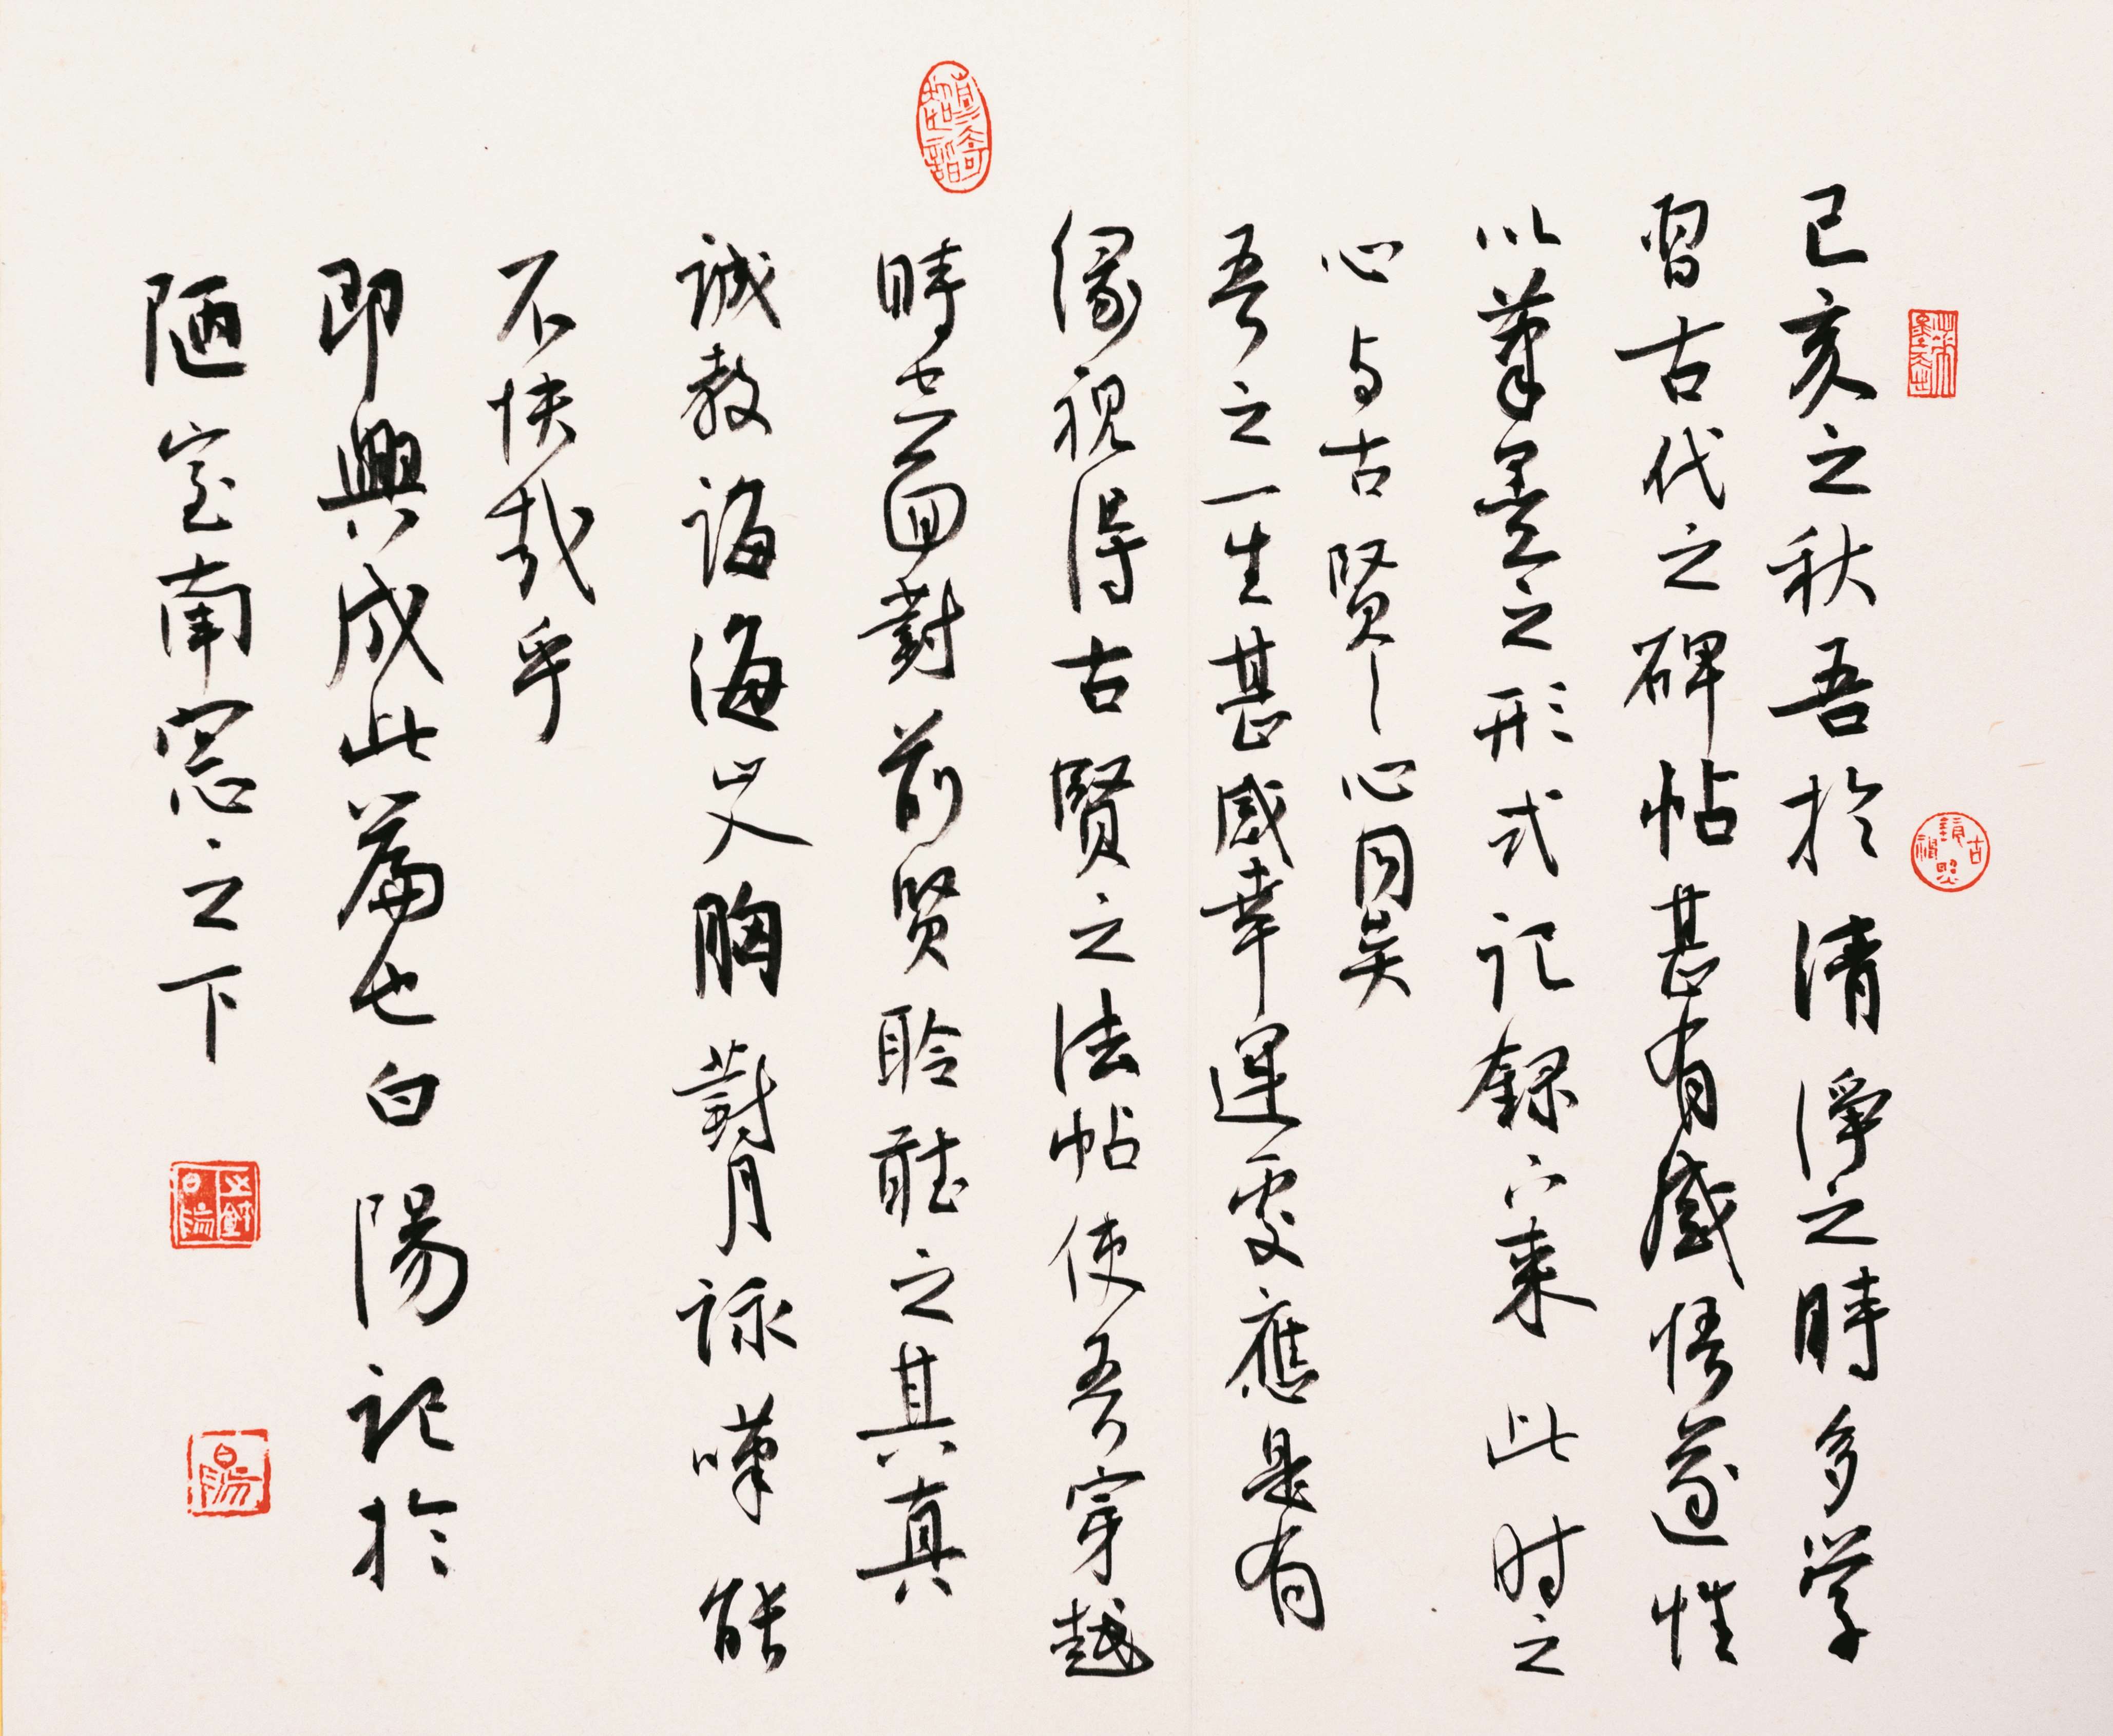 己亥之秋吾於清淨之時多学
習古代之碑帖甚有感悟遂性
以筆墨之形式记錄下来此时之
心与古贤之心同矣
吾之一生甚感幸運更應是有
緣視得古賢之法帖使吾穿越
時空面對前贤聆聽之其真
誠教誨海文胸對月詠嘆能
不快哉乎
即興成此篇也白陽记於
陋室南窓之下
白陽